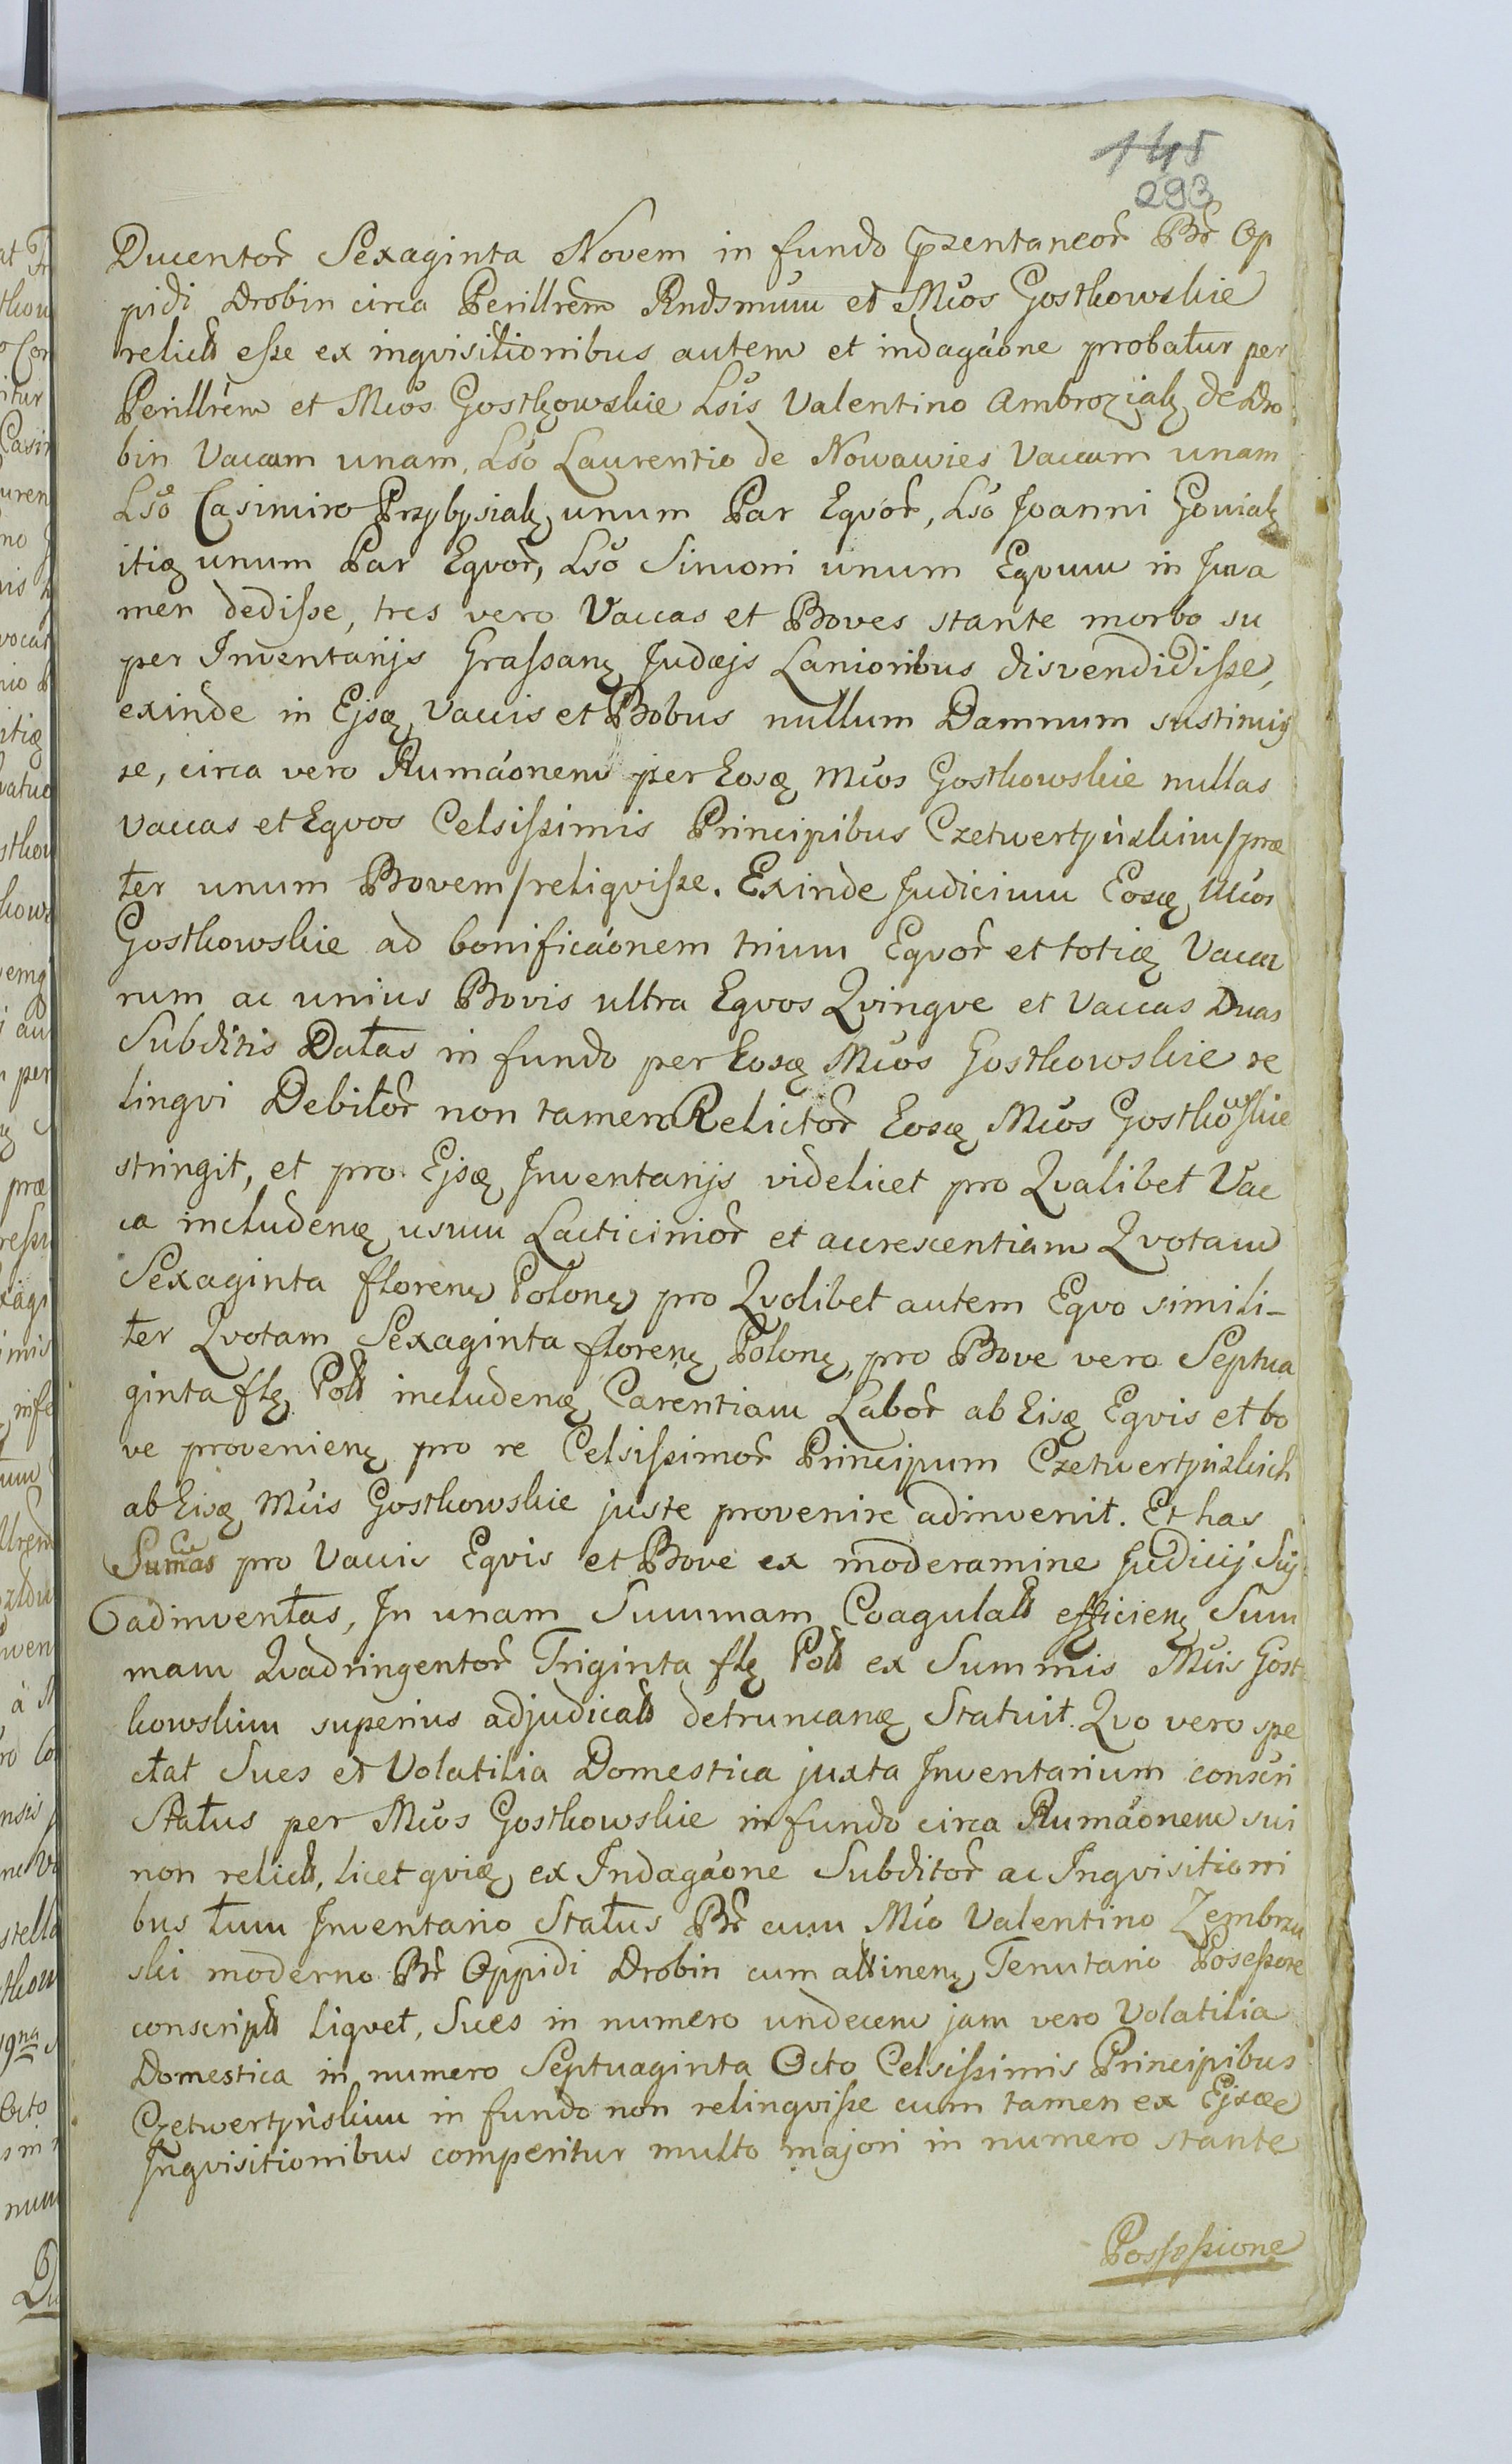 145
293
Ducentor̃ Sexaginta Novem in fundo p̃zentaneor̃ Br̃ Op
pidi Drobin circa Perillrẽm Rndsmũm et Mcos Gostkowskie
relict esse ex inqvisitionibus autem et indagaõne probatur per
Perillrẽm et Mcos Gostkowskie Lsis Valentino Ambroziak de Dro
bin Vaccam unam, Lso Laurentio de Nowawies Vaccam unam
Lso Casimiro Przybysiak unum Par Eqvor̃, Lso Joanni Goviak
itiq unum Par Eqvor̃, Lso Simoni unum Eqvum in Juva
men dedisse, tres vero Vaccas et Boves stante morbo su
per Inventarijs Grassanę Judæjs Lanioribus disvendidisse,
exinde in Ejsq Vaccis et Bobus nullum Damnum sustinuis
se, circa vero Rumaõnem per Eosq Mcos Gostkowskie nullas
Vaccas et Eqvos Celsissimis Principibus Czetwertyńskim /præ
ter unum Bovem/ reliqvisse. Exinde Judicium Eosq Mcos
Gostkowskie ad bonificaõnem trium Eqvor̃ et totiq Vacca
rum ac unius Bovis ultra Eqvos Qvinqve et Vaccas Duas
Subditis Datas in fundo per Eosq Mcos Gostkowskie re
linqvi Debitor̃ non tamen Relictor̃ Eosq Mcos Gostkowskie
stringit, et pro Ejsq Inventarijs videlicet pro Qvalibet Vac
ca includenę usum Lacticinior̃ et accrescentiam Qvotam
Sexaginta florenę Polonę pro Qvolibet autem Eqvo simili-
ter Qvotam Sexaginta florenę Polonę, pro Bove vero Septua
ginta flę Poll includenę Carentiam Labor̃ ab Eisq Eqvis et bo
ve provenienę pro re Celsissimor̃ Principum Czetwertyńskich
ab Eisq Mcis Gostkowskie juste provenire adinvenit. Et has
Sum̃as pro Vaccis Eqvis et Bove ex moderamine Judicij Sij
adinventas, In unam Summam Coagulatt efficienę Sum
mam Qvadringentor̃ Triginta flę Poll ex Summis Mcis Gost
kowskim superius adjudicatt detruncanę Statuit. Qvo vero spe
ctat Sues et Volatilia Domestica juxta Inventarium conscri
Status per Mcos Gostkowskie in fundo circa Rumaõnem sui
non relict, licet qviq ex Indagaõne Subditor̃ ac Inqvisitioni
bus tum Inventario Status Br̃ cum Mco Valentino Zembrzu
ski moderno Br̃ Oppidi Drobin cum attinenę Tenutario Posessore
conscript liqvet, Sues in numero undecem jam vero Volatilia
Domestica in numero Septuaginta Octo Celsissimis Principibus
Czetwertyńskim in fundo non relinqvisse cum tamen ex Ejsce
Inqvisitionibus comperitur multo majori in numero stante
Possessione